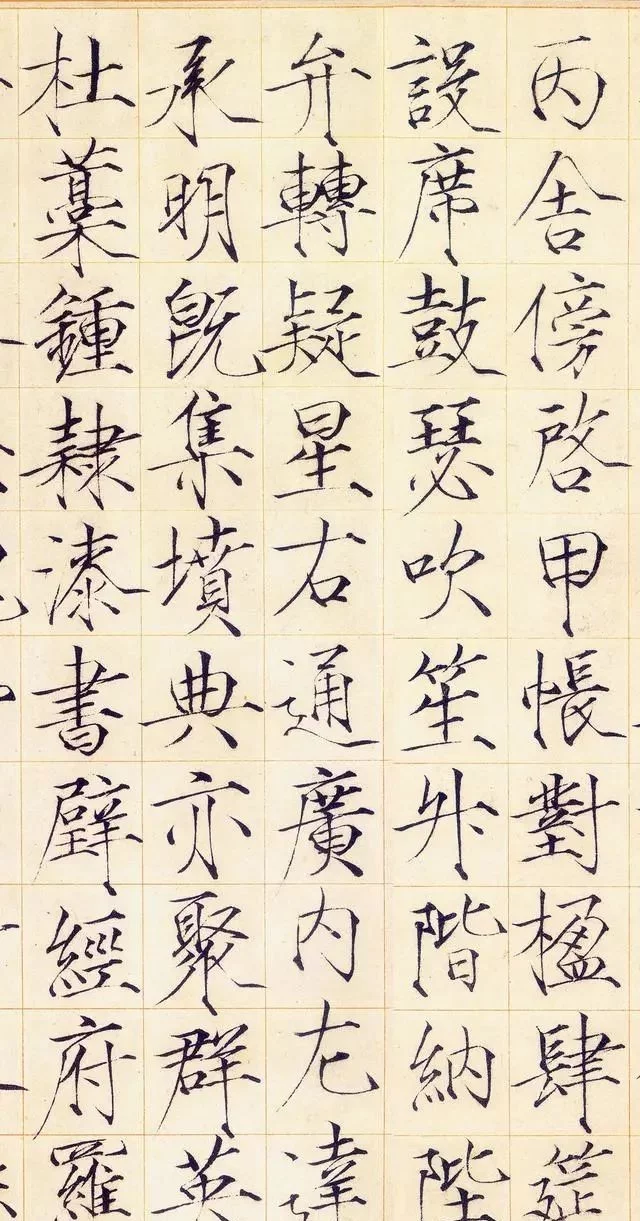 丙舍傍啓甲帳對楹肆筵
設席鼓瑟吹笙升階納陛
弁轉疑星右通廣内左達
承明既集墳典亦聚群英
杜藁鍾隸漆書壁經府羅